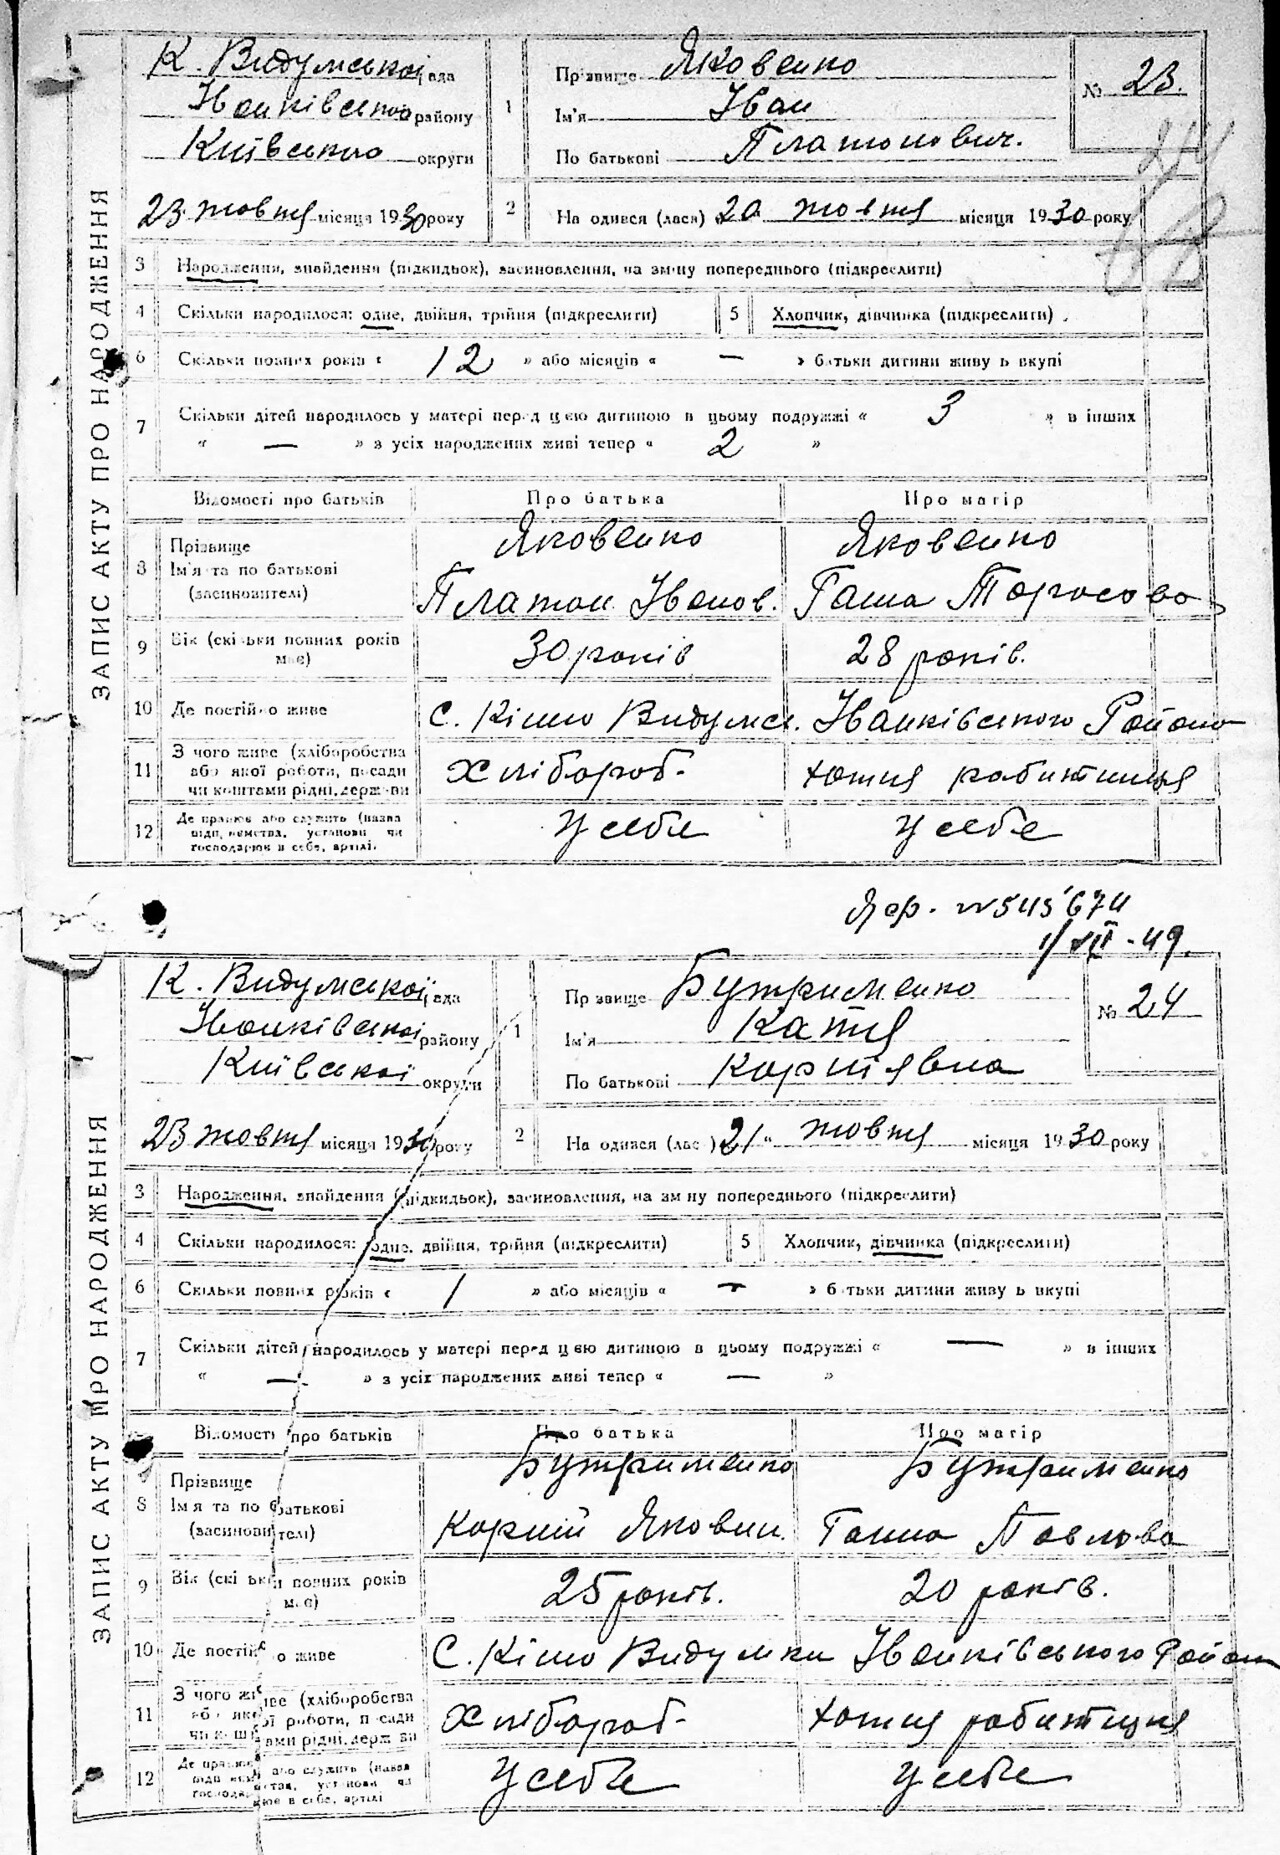 ЗАПИС АКТУ ПРО НАРОДЖЕННЯ
К. Видумської рада
Іванківського району
Київського округи
23 жовтня місяця 1930 року
1
Прізвище Яковенко
Ім'я Іван
По батькові Платонович.
№ 23.
24
2
На одився (лася) « 20 жовтня місяця 1930 року
3 Народження, знайдення (підкидьок), засиновлення, на зміну попереднього (підкреслити)
4 Скільки народилося: одне, двійня, трійня (підкреслити) 5 Хлопчик, дівчинка (підкреслити)
6 Скільки повних років « 12 » або місяців « — » батьки дитини живу ь вкупі
7 Скільки дітей народилось у матері перед цією дитиною в цьому подружжі « 3 » в інших
« — » з усіх народжених живі тепер « 2 »
Відомості про батьків Про батька Про матір
8 Прізвище Яковенко Яковенко
Ім'я та по батькові
(засиновителі) Платон Іванов. Ганна Тарасова
9 Вік (скільки повних років має) 30 років 28 років.
10 Де постійно живе с. Кішо Видумсь. Іванківського Района
11 З чого живе (хліборобства або якої роботи, посади чи коштами рідні, держави хлібороб- хатня работниця
12 Де працює або служить (назва підприємства, установи чи господарює в себе, артілі. У себе У себе
Яф. № 545674
1/VII - 49.
ЗАПИС АКТУ ПРО НАРОДЖЕННЯ
К. Видумської рада
Іванківської району
Київської округи
23 жовтня місяця 1930 року
1
Прізвище Бутрименко
Ім'я Катя
По батькові Корніявна
№ 24
2
На одився (лас ) 21 " жовтня місяця 1930 року
3 Народження, знайдення (підкидьок), засиновлення, на зміну попереднього (підкреслити)
4 Скільки народилося: одне, двійня, трійня (підкреслити) 5 Хлопчик, дівчинка (підкреслити)
6 Скільки повних років « 1 » або місяців « — » батьки дитини живу ь вкупі
7 Скільки дітей народилось у матері перед цією дитиною в цьому подружжі « — » в інших
« — » з усіх народжених живі тепер « — »
Відомості про батьків Про батька Про матір
8 Прізвище Бутрименко Бутрименко
Ім'я та по батькові
(засиновителі) Корній Якович. Ганна Павлова
9 Вік (скільки повних років має) 25 років. 20 років.
10 Де постійно живе С. Кішо Видумки Іванківського Района
11 З чого живе (хліборобства або якої роботи, посади чи коштами рідні, держави хлібороб- хатня работниця
12 Де працює або служить (назва підприємства, установи чи господарює в себе, артілі У себе У себе